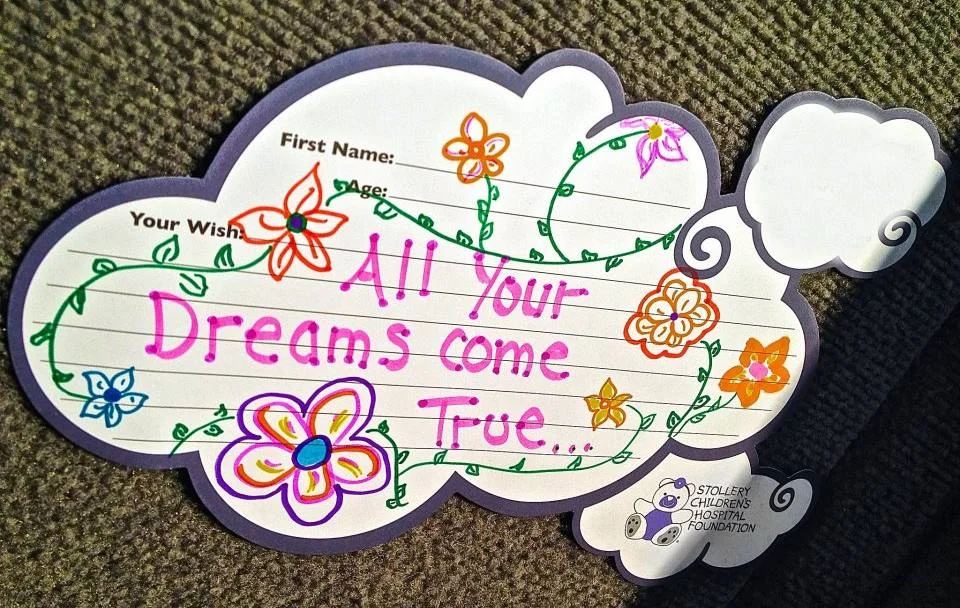 First Name:
Age:
Your Wish:
All Your
Dreams come
True...
STOLLERY
CHILDREN'S
HOSPITAL
FOUNDATION